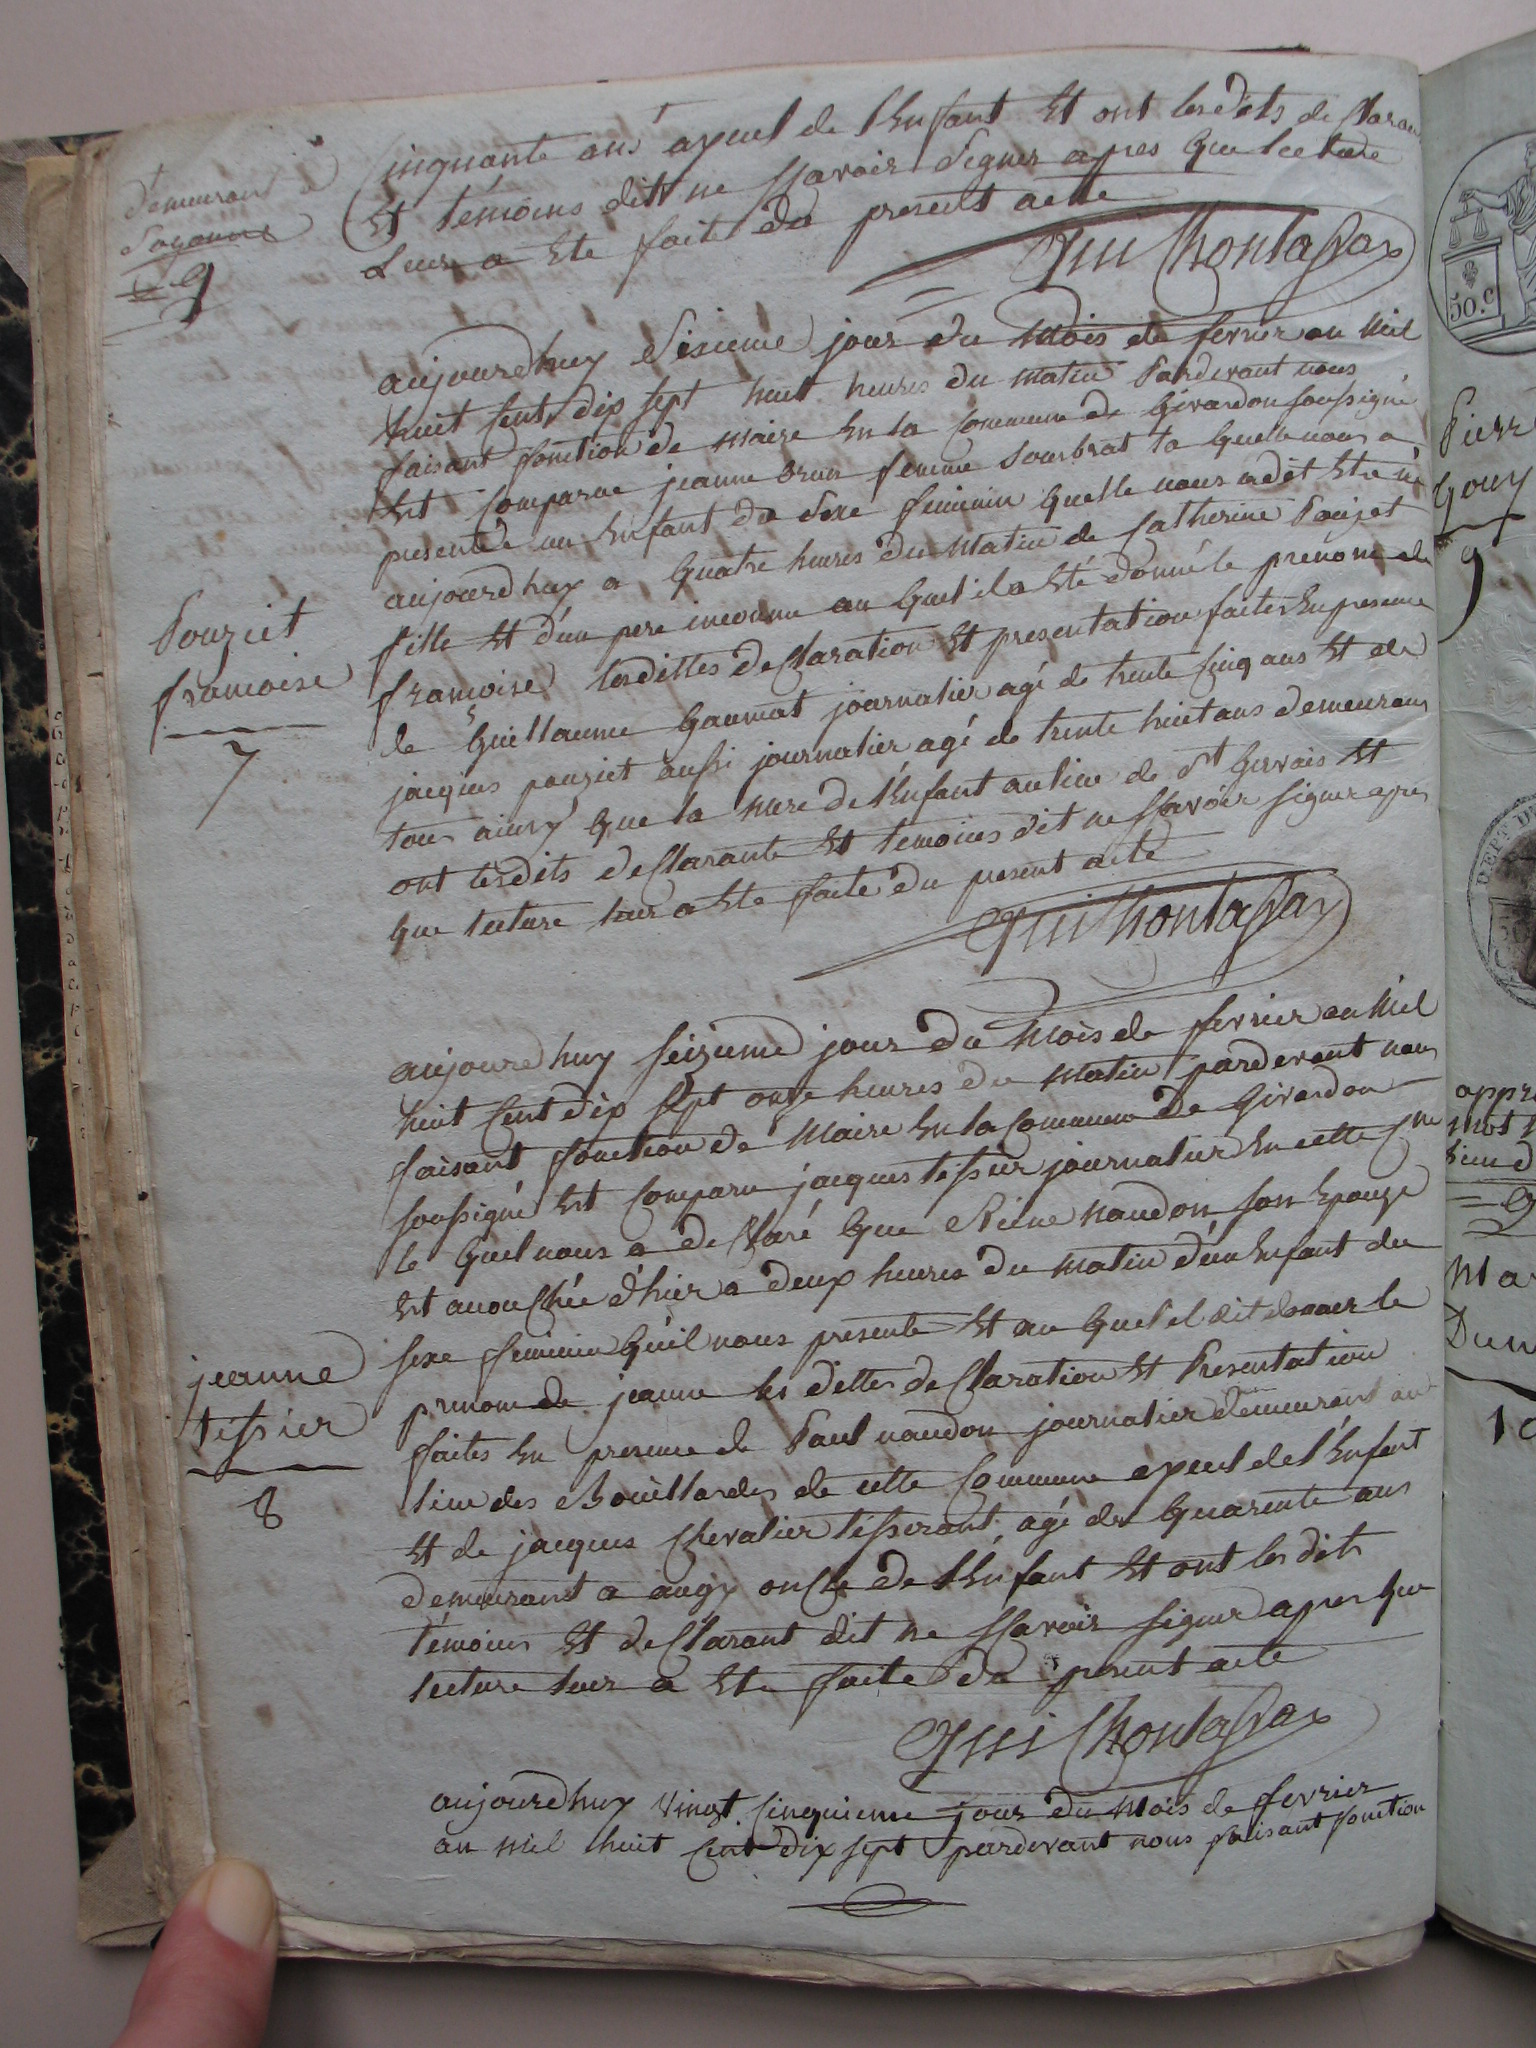 demeurant a
Cinquante ans ayeul de l'Enfant Et ont lesdits de Claran
Et témoins dits ne sçavoir Signer apres que lecture
Leur a Ete faite du present acte
9
aujourdhuy Sixieme jour du Mois de fevrier an Mil
huit Cent dix sept huit heures du matin Pardevant nous
faisant fonction de Maire En la Commune de Givardon soussigné
Est Comparue jeanne brun femme Sourbrat la quelle nous a
presenté un Enfant du Sexe feminin quelle nous a dit Etre né
aujourdhuy a quatre heures du Matin de Catherine Pouziet
fille Et d'un pere inconnu au quel il a Eté donné le prenom de
francoise lesdittes de Claration Et presentation faites En presence
de Guillaume Gaumat journalier agé de trente Cinq ans Et de
jacques pouziet aussi journalier agé de trente huit ans demeurans
tous ainsy que la mere de l'Enfant au lieu de St Gervais Et
ont lesdits de Clarante Et temoins dit ne sçavoir signer apres
que lecture leur a Ete faite du present acte
Pouziet
francoise
7
aujourdhuy seizieme jour du Mois de fevrier an Mil
huit Cent dix sept onze heures du Matin pardevant nous
faisant fonction de Maire En la Commune De Givardon
soussigné Est Comparu jacques tissier journalier En cette Cne
le quel nous a de Claré que Reine naudon son Epouze
Est accouchée d'hier a deux heures du matin d'un Enfant du
sexe feminin qu'il nous presente Et au quel il dit donner le
prenom de jeanne les dittes de Claration Et Presentation
faites En presence de Paul naudon journalier demeurant au
lieu des Bouillardes de cette Commune ayeul de l'Enfant
Et de jacques Chevalier tisserant agé de quarente ans
demeurant a augy oncle de l'Enfant Et ont les dits
témoins Et de Clarant dit ne sçavoir signer apres que
lecture leur a Ete faite du present acte
jeanne
tissier
8
aujourdhuy vingt Cinquieme jour du Mois de fevrier
an mil huit Cent dix sept pardevant nous faisant fonction
50.c
Pierr
Gouy
9
DEPT D
appr
Mot
9
Ma
Dum